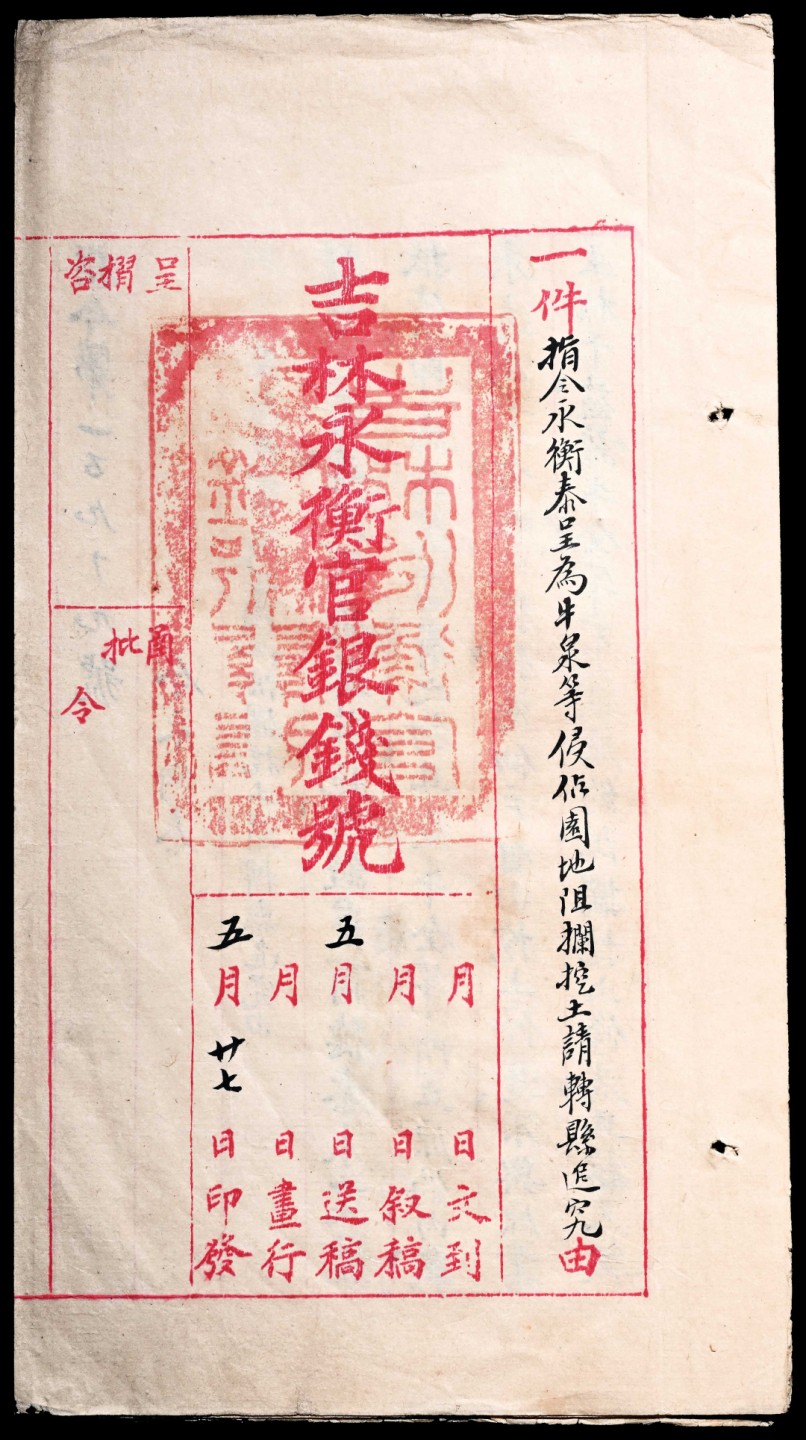 一件指令永衡泰呈為牛泉等侵佔園地阻攔挖土請轉縣追究由
吉林永衡官銀錢號
月 日文到
月 日叙稿
五月 日送稿
月 日畫行
五月廿七日印發
呈
摺
咨
批
令